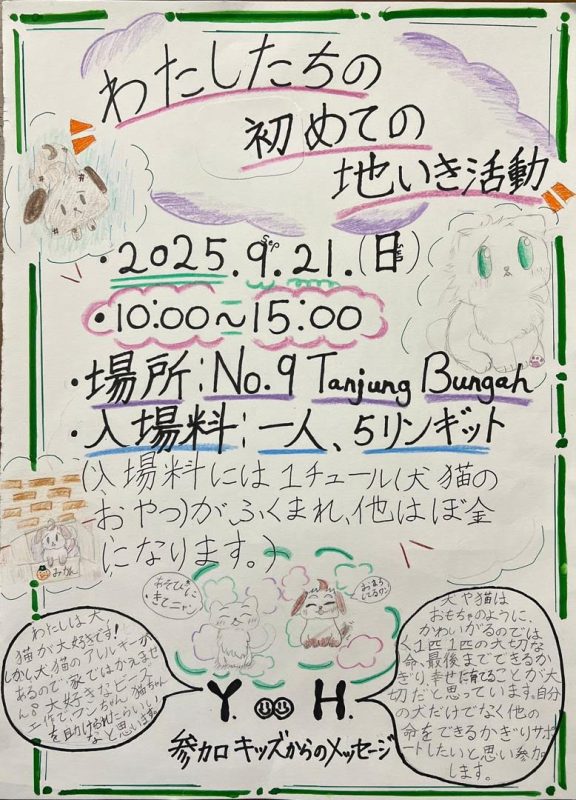 わたしたちの
初めての
地いき活動
・2025.9.21.(日)
Sep
・10:00~15:00
・場所:No.9 Tanjung Bungah
・入場料:一人、5リンギット
(入場料には1チュール(犬猫の
おやつ)が、ふくまれ、他はぼ金
になります。)
みかん
あそびに
きてニャン
おまち
してるワン
わたしは犬、
猫が大好きです!
しかし犬猫のアレルギーが
あるので家ではかえませ
ん。大好きなビーズ
工作で、ワンちゃん、猫ちゃん
を助けられたらいい
なと思います
犬や猫は
おもちゃのように、
かわいがるのでは
く1匹1匹の大切な
命、最後までできるか
ぎり、幸せに育てることが大
切だと思っています。自分
の犬だけでなく他の
命をできるかぎりサポ
ートしたいと思い参加
します。
Y. H.
参加キッズからのメッセージ